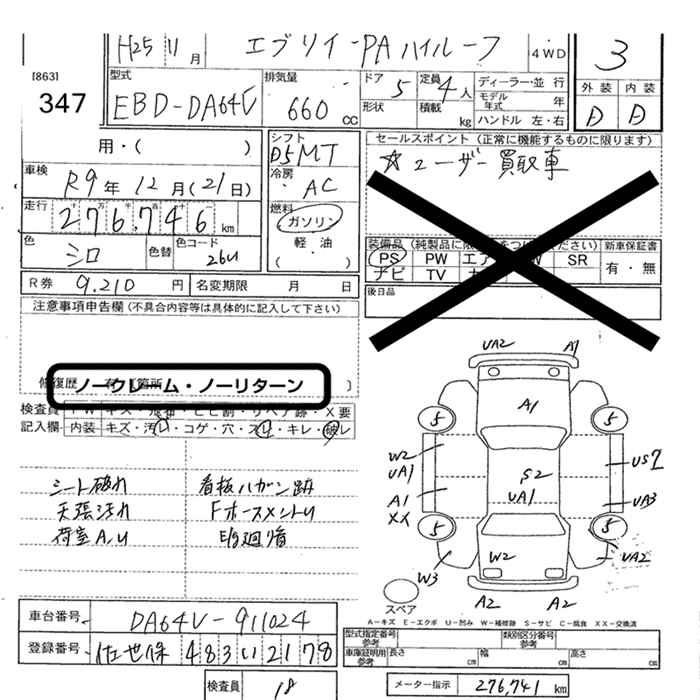 H25 11月 エブリイ-PAハイルーフ 4WD 3
[863] 347
型式 EBD-DA64V 排気量 660 CC
ドア 5 定員 4人 ディーラー・並 行
形状 積載 kg モデル年式 年
ハンドル 左・右
外装 内装
D D
用・( )
シフト D5MT
セールスポイント (正常に機能するものに限ります)
☆ユーザー買取車
車検 R9年 12月(21日)
冷房 AC
走行 276,746 km
燃料 ガソリン
軽・油
( )
色 シロ 色替 色コード 26U
装備品 (純製品に限
ください) 新車保証書
PS PW エア SR 有・無
ナビ TV
R券 9,210 円 名変期限 月 日
後日品
注意事項申告欄 (不具合内容等は具体的に記入して下さい)
修復歴
ノークレーム・ノーリターン
検査員記入欄
内装 キズ・汚レ・コゲ・穴・スレ・キレ・破レ
シート破れ 看板ハガシ跡
天張汚れ FホースメントU
荷室A,U E/g廻り音
UA2 A1
A1
5 5
W2 UA1 S2 US7
A1 XX UA1 UA3
5 5
W3 W2 UA2
スペア A2 A2
A-キズ E-エクボ U-凹み W-補修跡 S-サビ C-腐食 XX-交換済
車台番号 DA64V-911024
登録番号 佐世保 483 い 2178
型式指定番号 参考 類別区分番号 参考
車庫証明用 参考 長さ cm 幅 cm 高さ cm
検査員 18
メーター指示 276,741 km